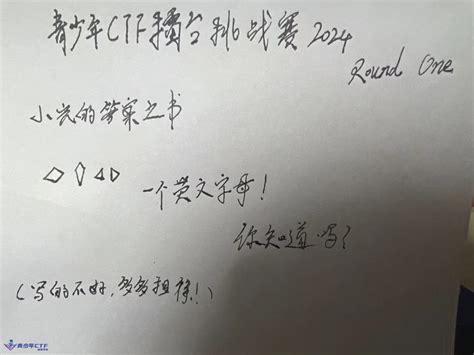 青少年CTF擂台挑战赛2024
Round One
小光的答案之书
一个英文字母!
你知道吗?
(写的不好,多多担待!)
青少年CTF